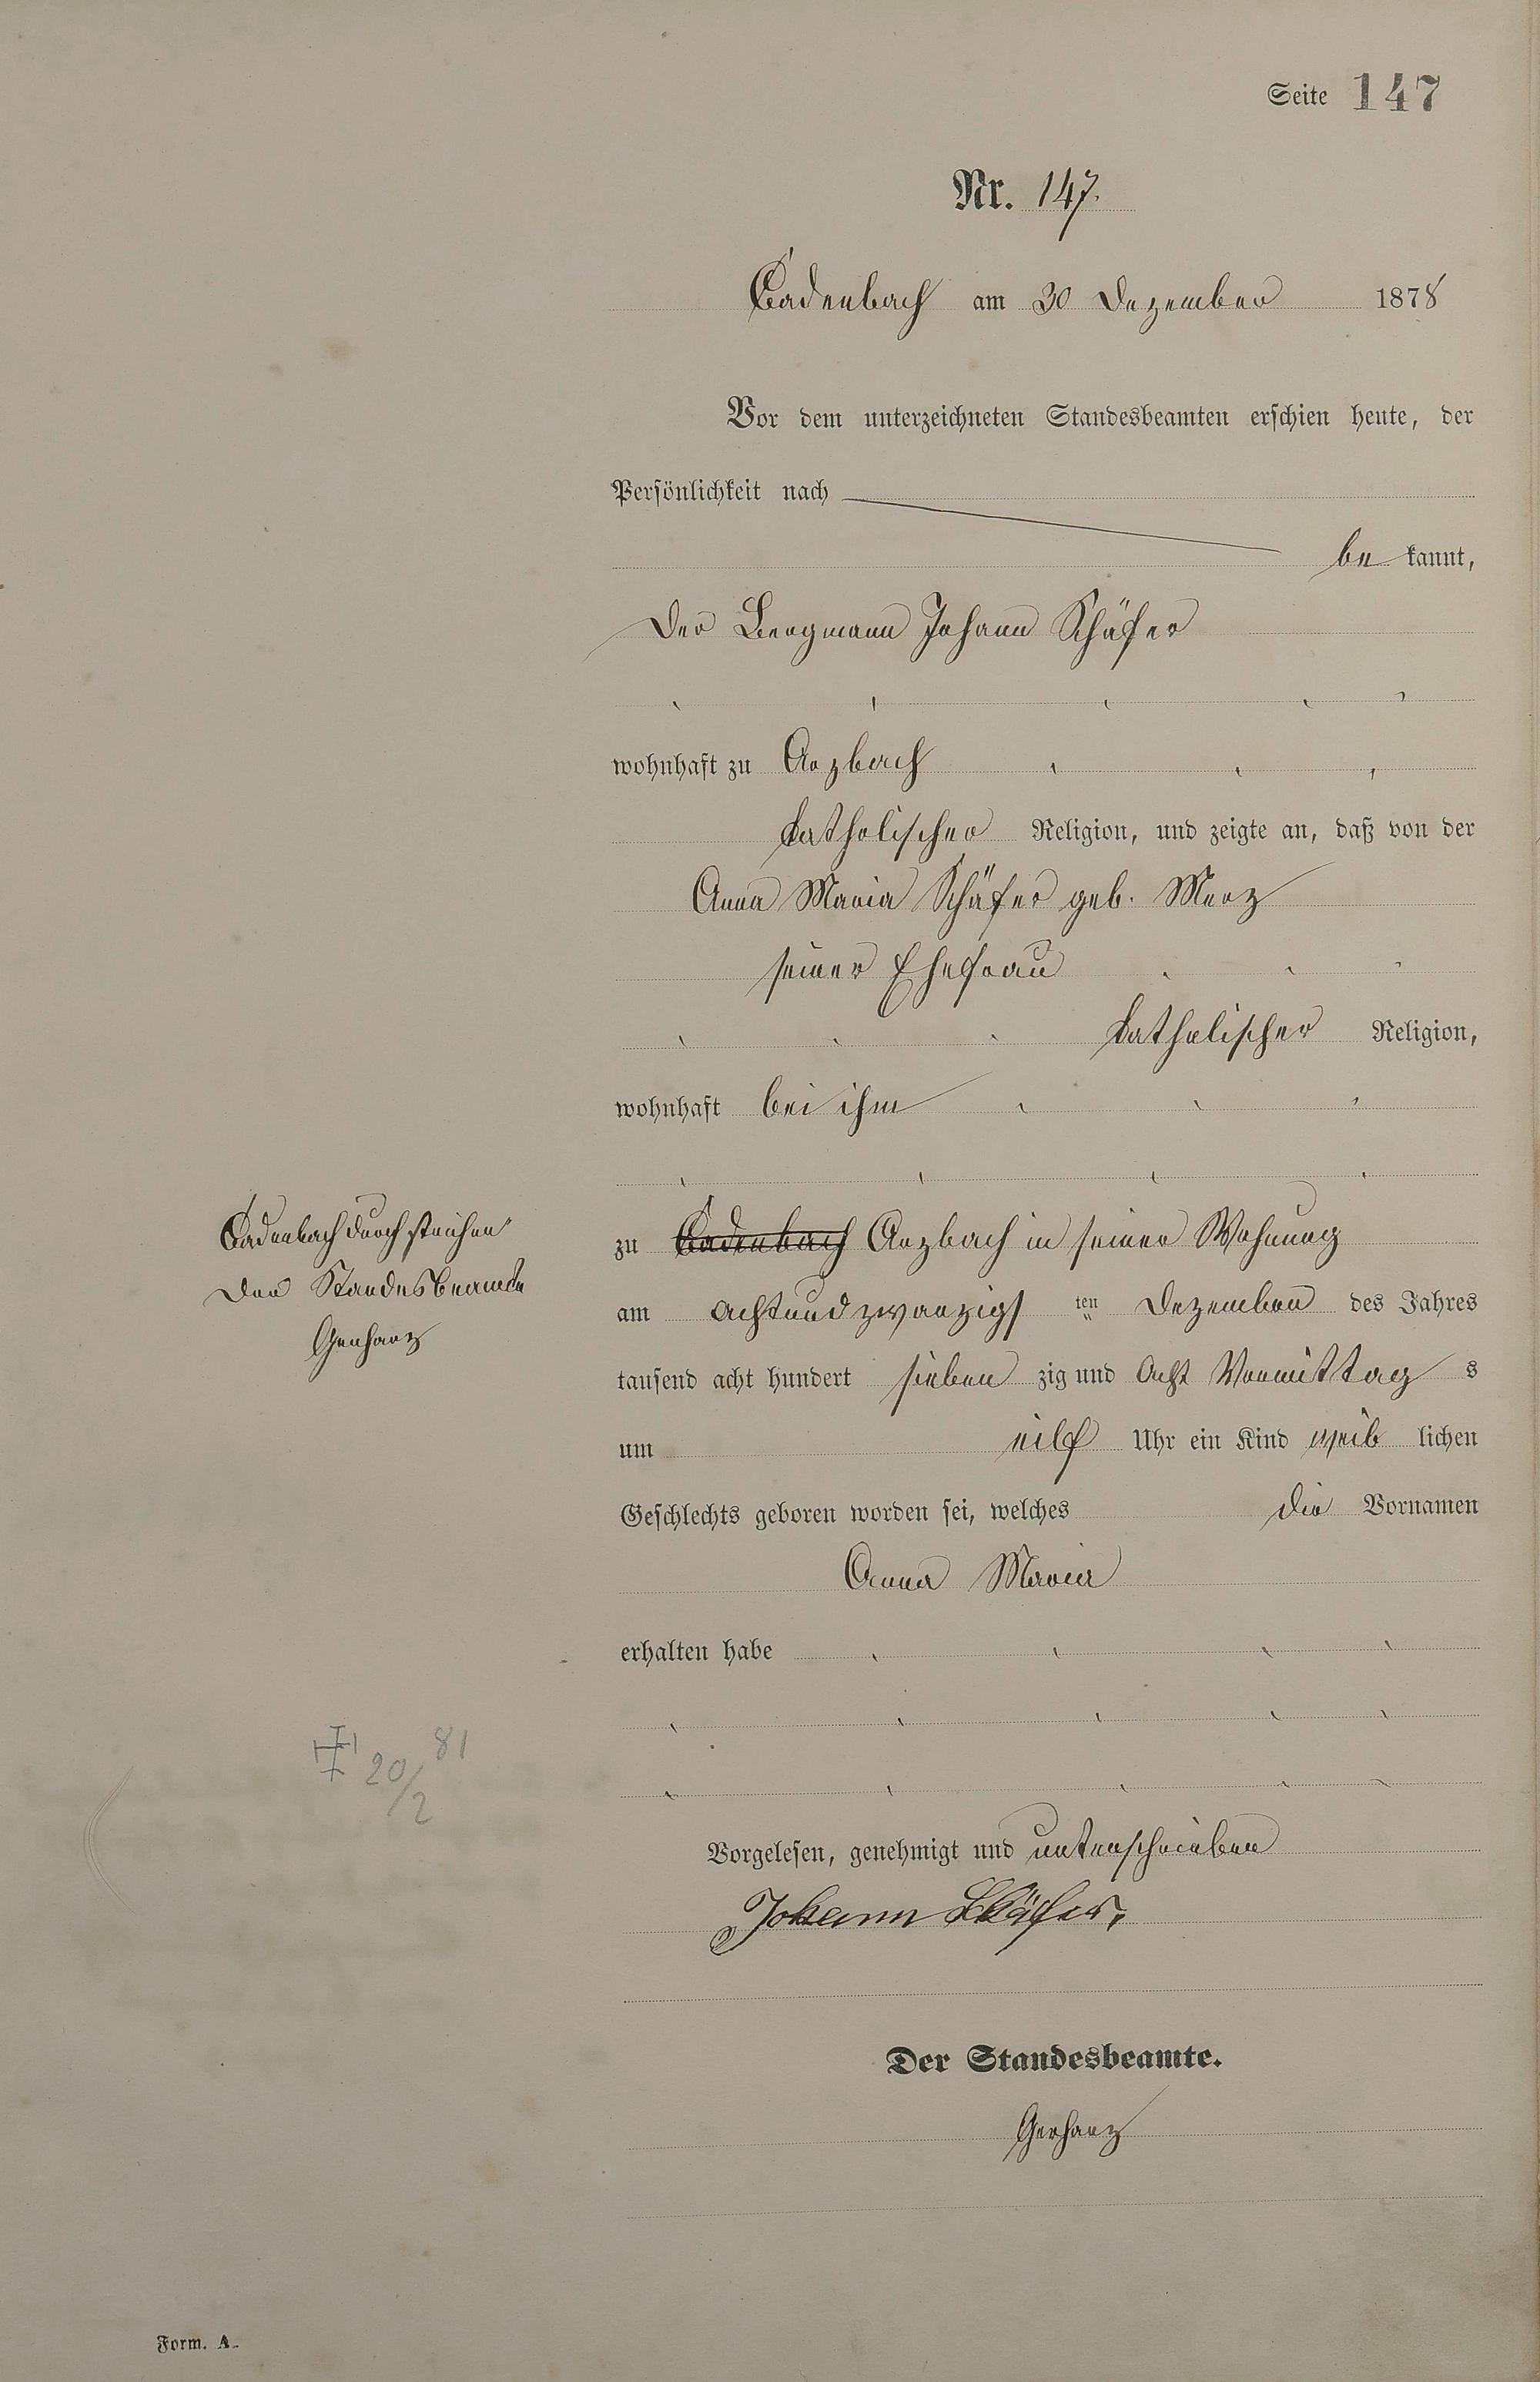 Seite 147
Nr. 147.
Cadenbach am 30 Dezember 1878
Vor dem unterzeichneten Standesbeamten erschien heute, der
Persönlichkeit nach
be kannt,
der Bergmann Johann Schäfer
wohnhaft zu Arzbach
katholischer Religion, und zeigte an, daß von der
Anna Maria Schäfer geb. Merz
seiner Ehefrau
katholischer Religion,
wohnhaft bei ihm
zu Cadenbach Arzbach in seiner Wohnung
am achtundzwanzigs ten Dezember des Jahres
tausend acht hundert sieben zig und acht Vormittag s
um eilf Uhr ein Kind weib lichen
Geschlechts geboren worden sei, welches die Vornamen
Anna Maria
erhalten habe
Vorgelesen, genehmigt und unterschrieben
Johann Schäfer,
Der Standesbeamte.
Gerharz
Cadenbach durchstrichen
Der Standesbeamte
Gerharz
20/2 81
Form. A.